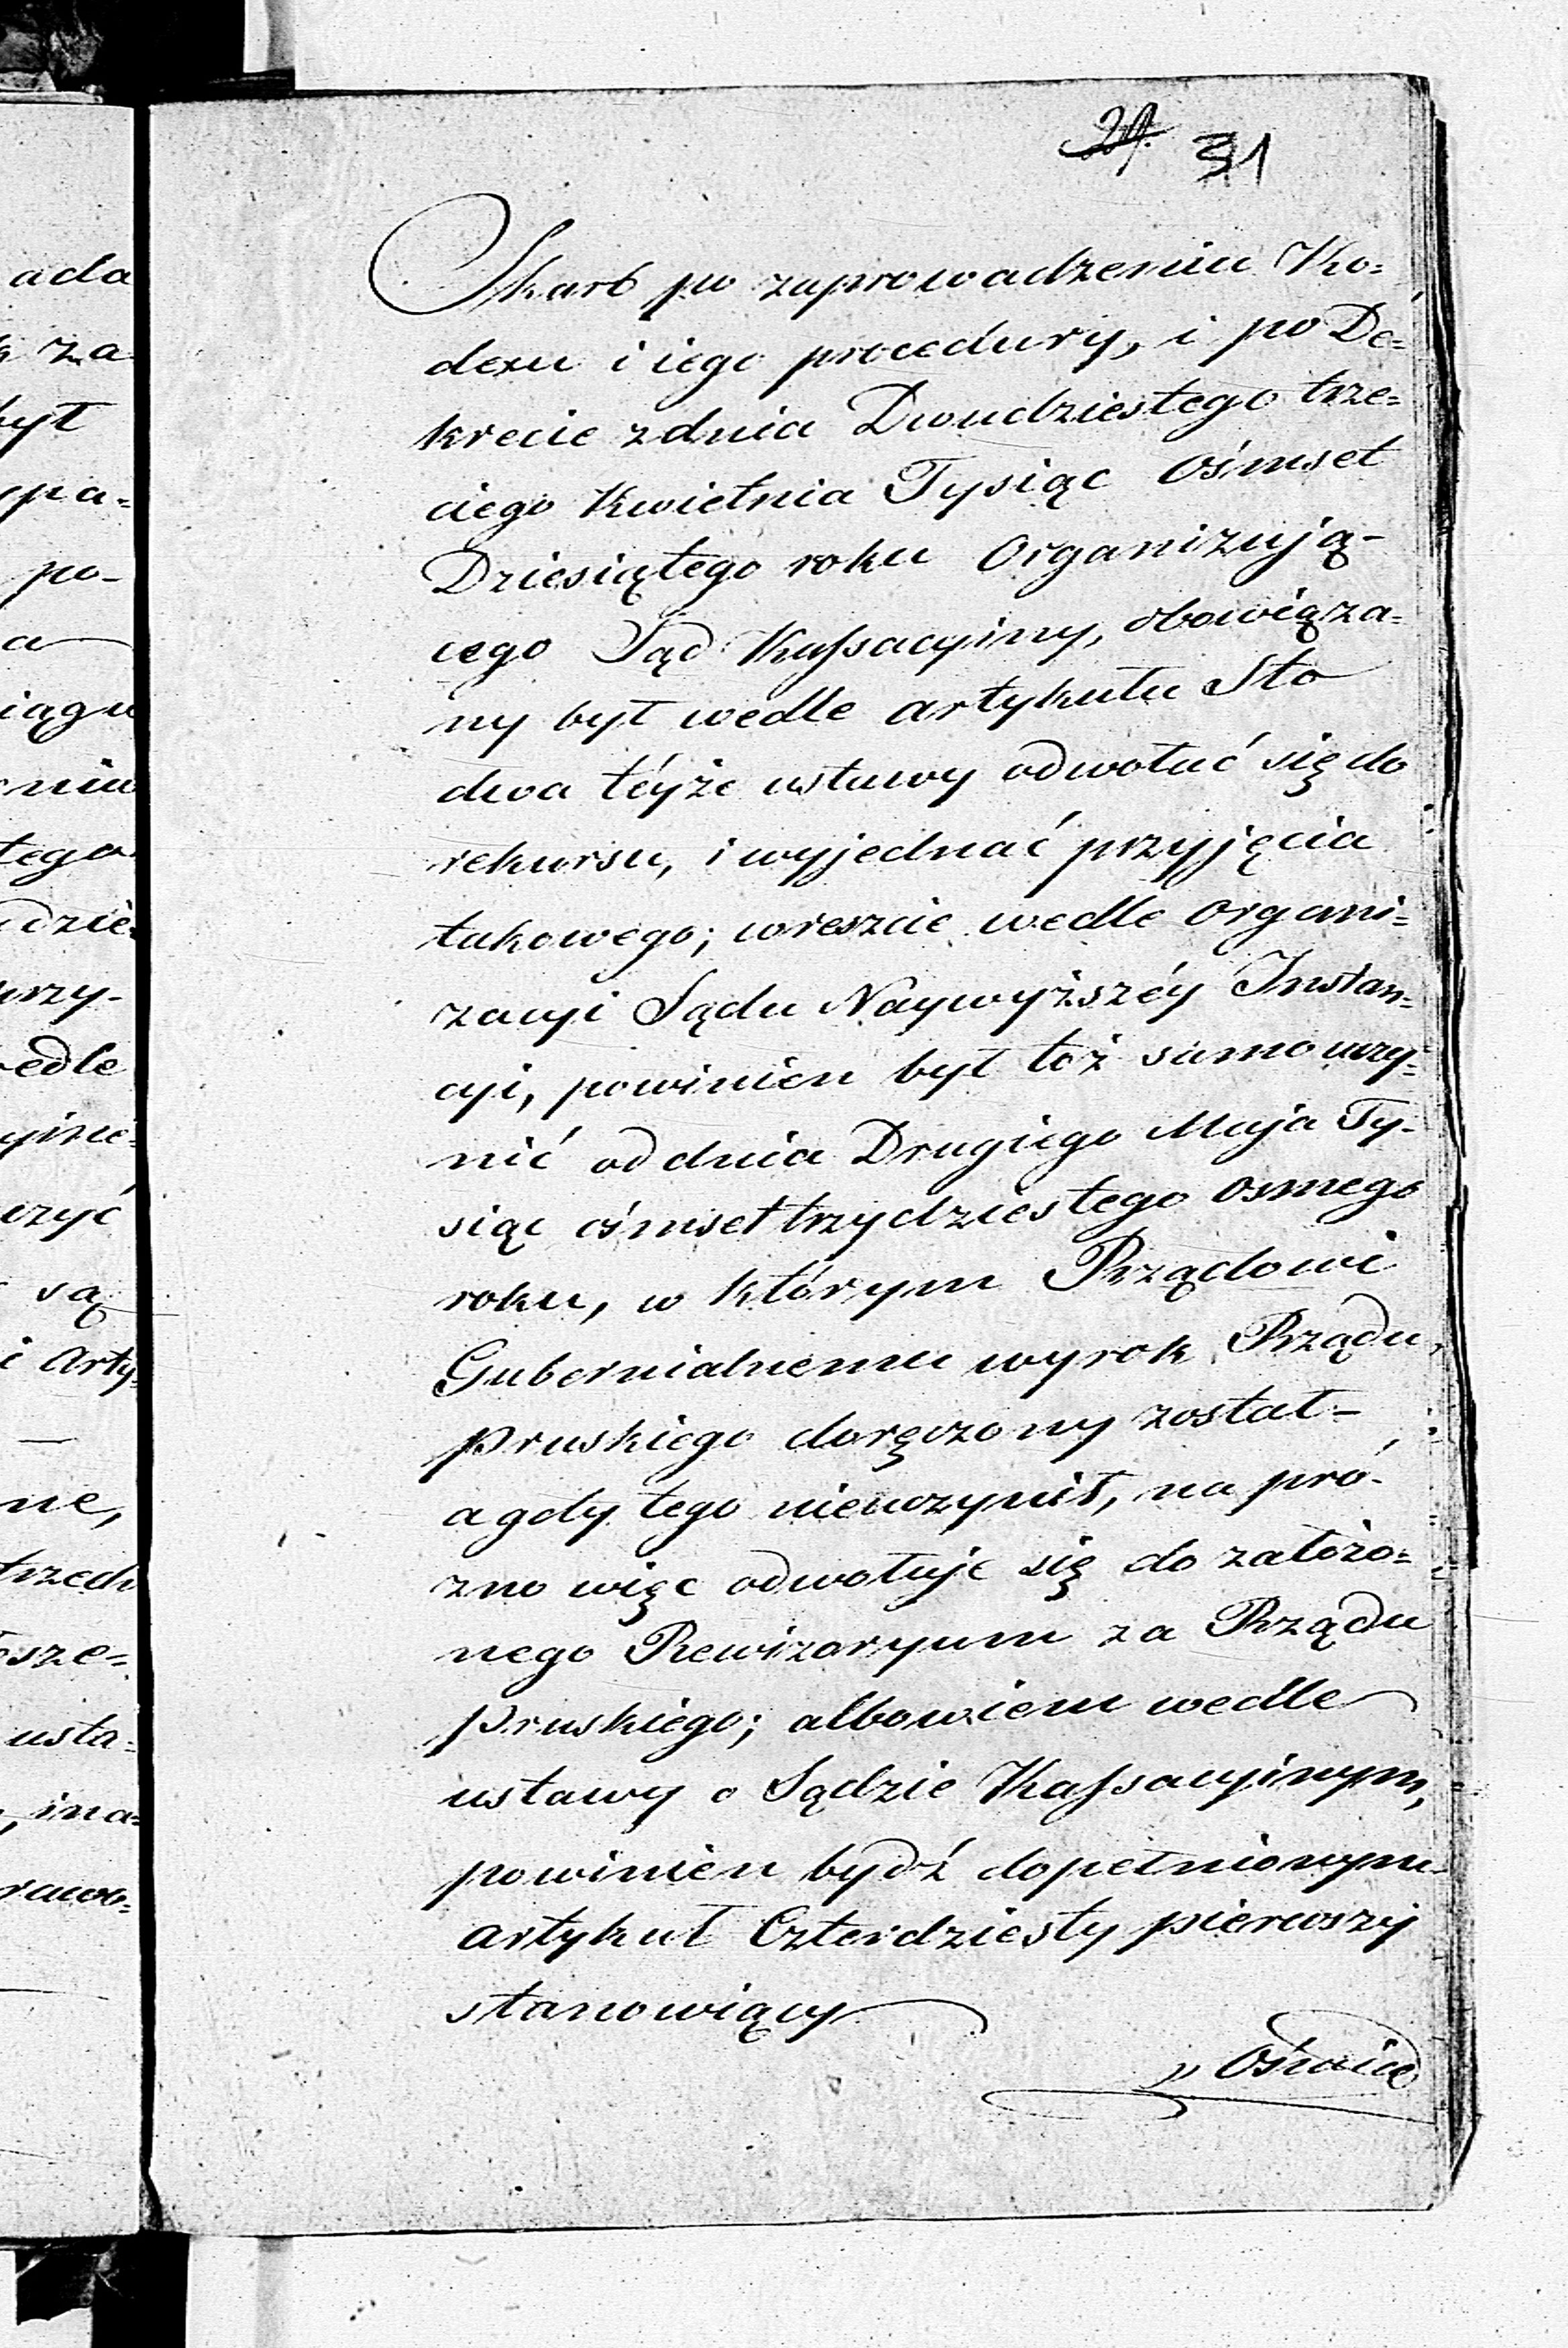 31
Skarb po zaprowadzeniu Ko=
dexu i iego procedury, i po De=
krecie z dnia Dwudziestego trze=
ciego Kwietnia Tysiąc Ośmset
Dziesiątego roku Organizują-
cego Sąd Kassacyiny, obowiąza=
ny był wedle artykułu Sto
dwa téyże ustawy odwołać się do
rekursu, i wyjednać przyjęcia
takowego; wreszcie wedle organi=
zacyi Sądu Naywyższéy Instan=
cyi, powinien był toż samo uczy=
nić od dnia Drugiego Maja Ty-
siąc ośmset trzydziestego osmego
roku, w którym Rządowi
Gubernialnemu wyrok Rządu
Pruskiego doręczony został -
a gdy tego nieuczynił, na pró-
zno więc odwołuje się do założo=
nego Rewizoryum za Rządu
Pruskiego; albowiem wedle
ustawy o Sądzie Kassacyinym,
powinien bydź dopełnionym
artykuł Czterdziesty pierwszy
stanowiący
ada
za
był
=
po-
a
iągu
niu
tego
dzie
rzy-
edle
yine=
czyć
są
i Arty=
ne,
trzech
sze=
usta=
, ina=